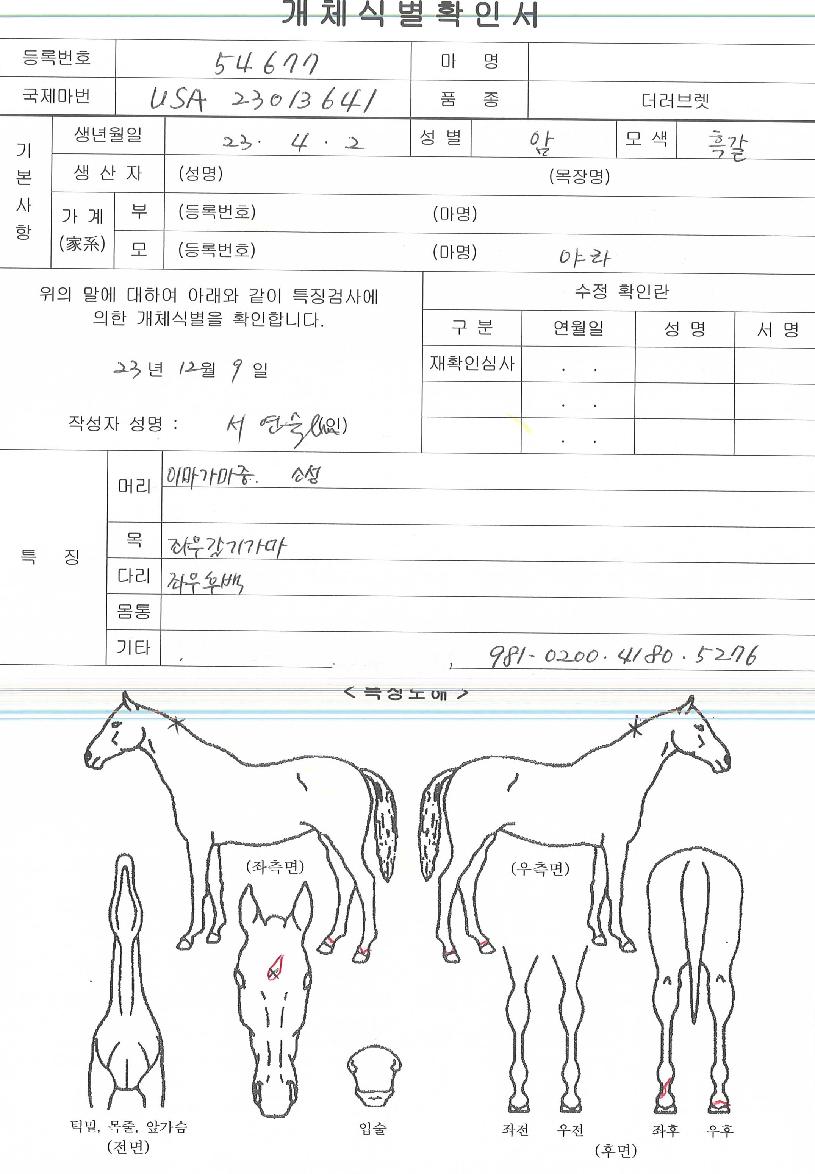 개체식별확인서
등록번호 54677 마 명
국제마번 USA 23013641 품 종 더러브렛
기본사항
생년월일 23. 4. 2 성별 암 모색 흑갈
생산자 (성명) (목장명)
가계(家系) 부 (등록번호) (마명)
모 (등록번호) (마명) 야라
위의 말에 대하여 아래와 같이 특징검사에
의한 개체식별을 확인합니다.
23년 12월 9일
작성자 성명 : 서연숙 (인)
수정 확인란
구 분 연월일 성 명 서 명
재확인심사 . .
. .
. .
특 징
머리 이마가마중. 소성
목 좌우갈기가마
다리 좌우후백
몸통
기타 981-0200.4180.5276
< 특징도해 >
(좌측면) (우측면)
턱밑, 목줄, 앞가슴
(전면)
입술
좌전 우전 좌후 우후
(후면)